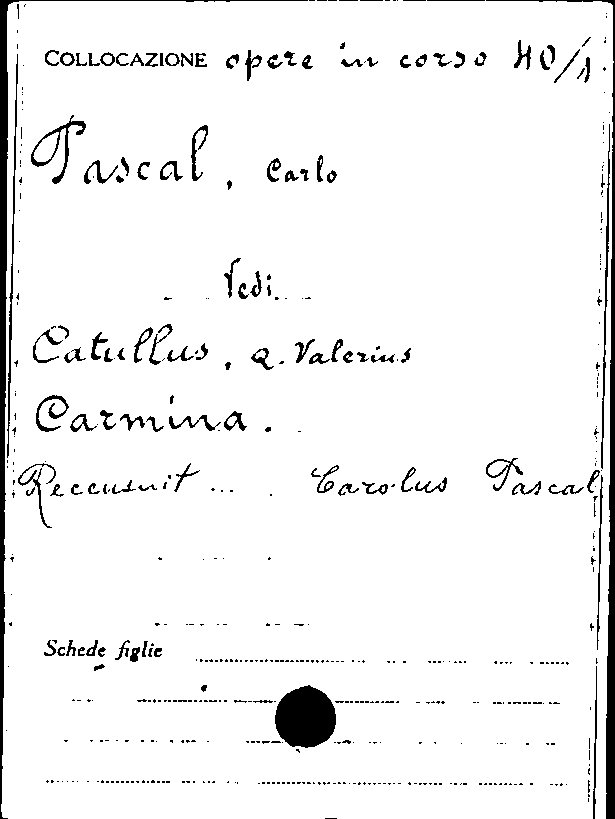 COLLOCAZIONE opere in corso 40/1
Pascal, Carlo
Vedi
Catullus, Q. Valerius
Carmina.
Recensuit ... . Carolus Pascal
Schede figlie